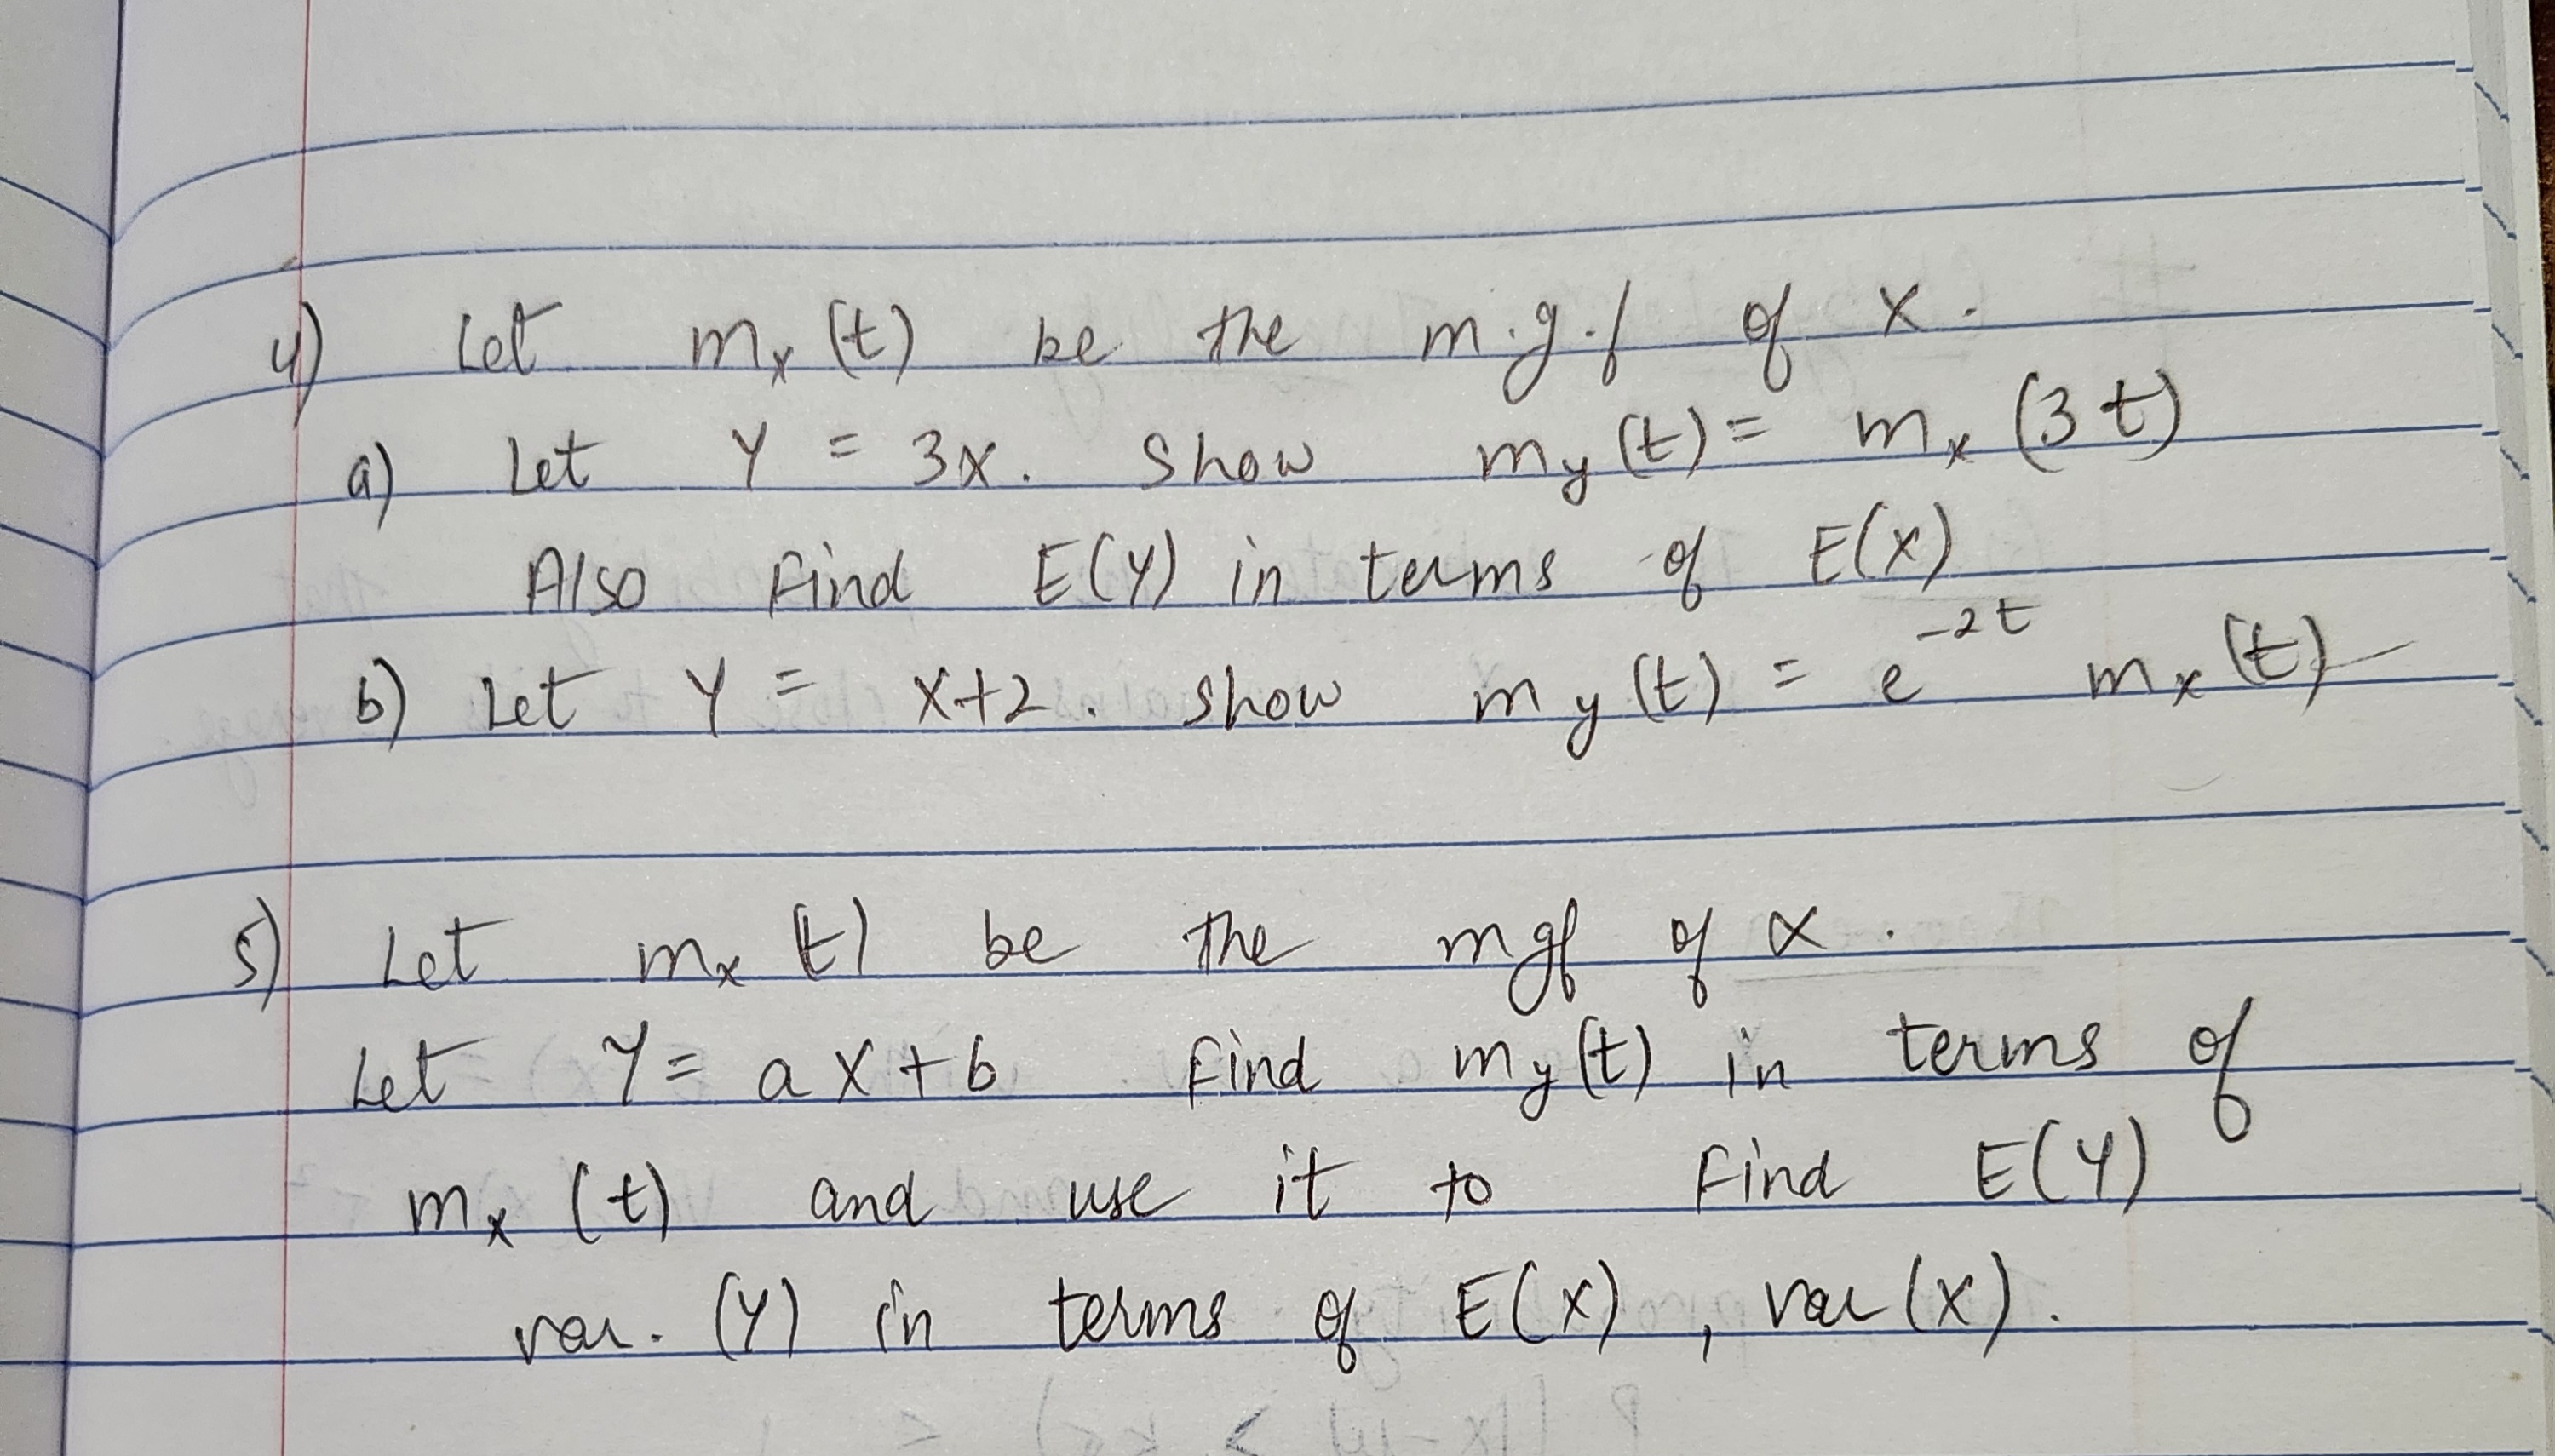 4) Let mx(t) be the m.g.f of X.
a) Let Y = 3X. Show my(t) = mx(3t)
Also Find E(Y) in terms of E(X)
b) Let Y = X+2. Show my(t) = e^-2t mx(t)
5) Let mx(t) be the mgf of X.
Let Y = aX+b Find my(t) in terms of
mx(t) and use it to Find E(Y)
var. (Y) in terms of E(X), var(X).